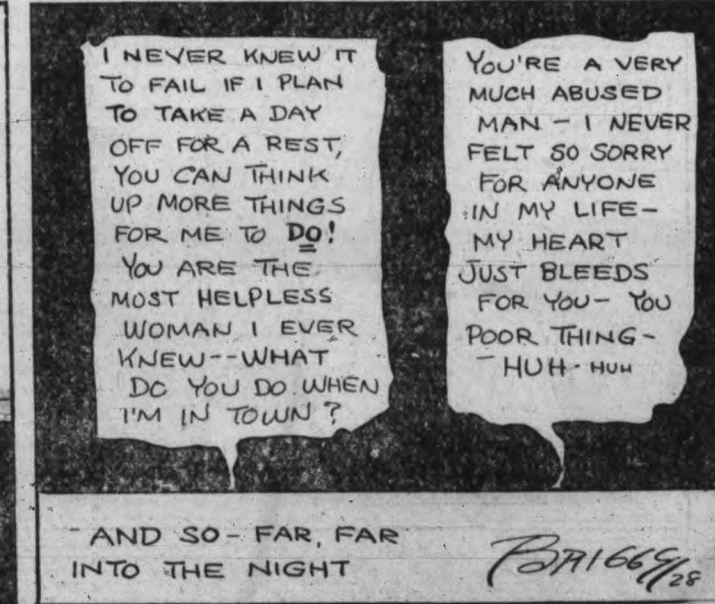 I NEVER KNEW IT
TO FAIL IF I PLAN
TO TAKE A DAY
OFF FOR A REST,
YOU CAN THINK
UP MORE THINGS
FOR ME TO DO!
YOU ARE THE
MOST HELPLESS
WOMAN I EVER
KNEW--WHAT
DO YOU DO WHEN
I'M IN TOWN?
YOU'RE A VERY
MUCH ABUSED
MAN - I NEVER
FELT SO SORRY
FOR ANYONE
IN MY LIFE-
MY HEART
JUST BLEEDS
FOR YOU- YOU
POOR THING-
- HUH - HUH
- AND SO - FAR, FAR
INTO THE NIGHT
BRIGGS/28